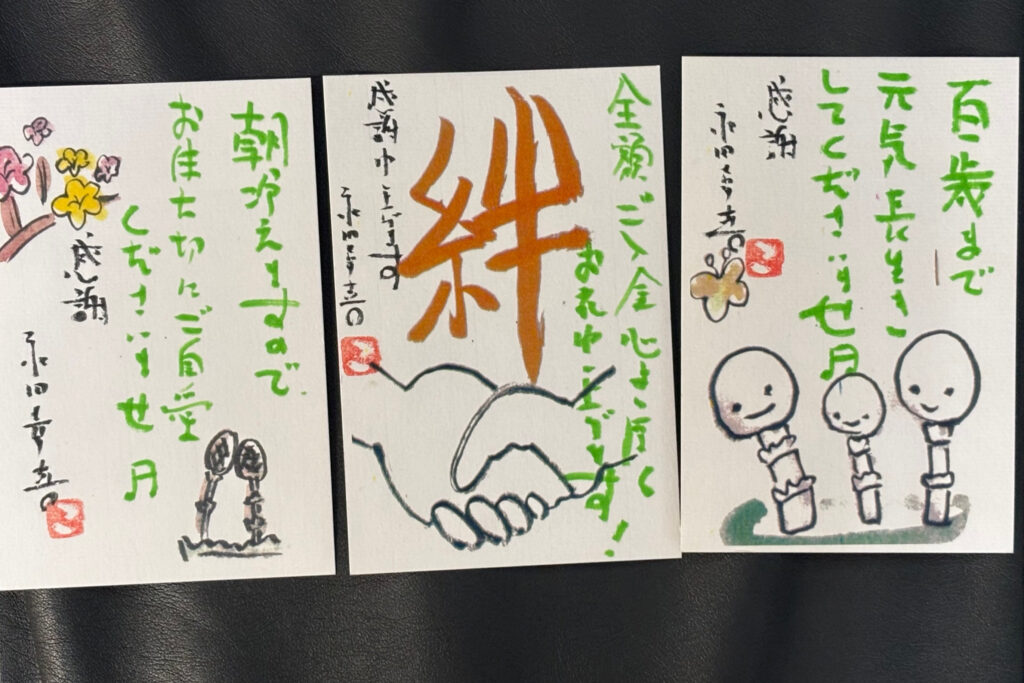 百歳まで
元気長生き
してくださいませ 月
感謝
永田
全額ご入金心より厚く
お礼申上げます!
絆
感謝申上げます
永田
朝冷えますので
お体大切にご自愛
くださいませ 月
感謝
永田